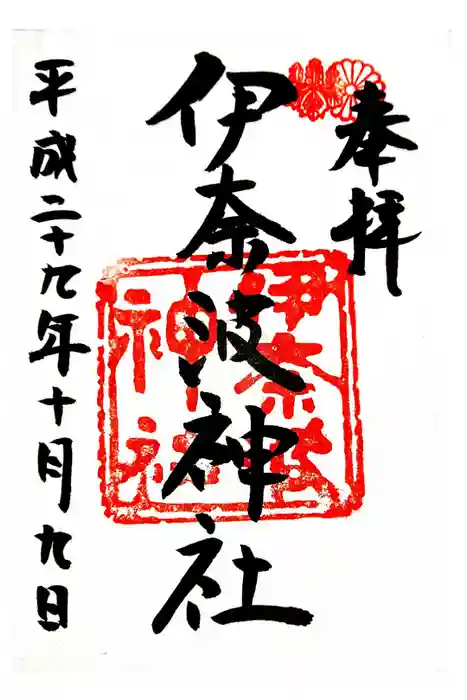 奉拝
伊奈波神社
平成二十九年十月九日
伊奈波
神社